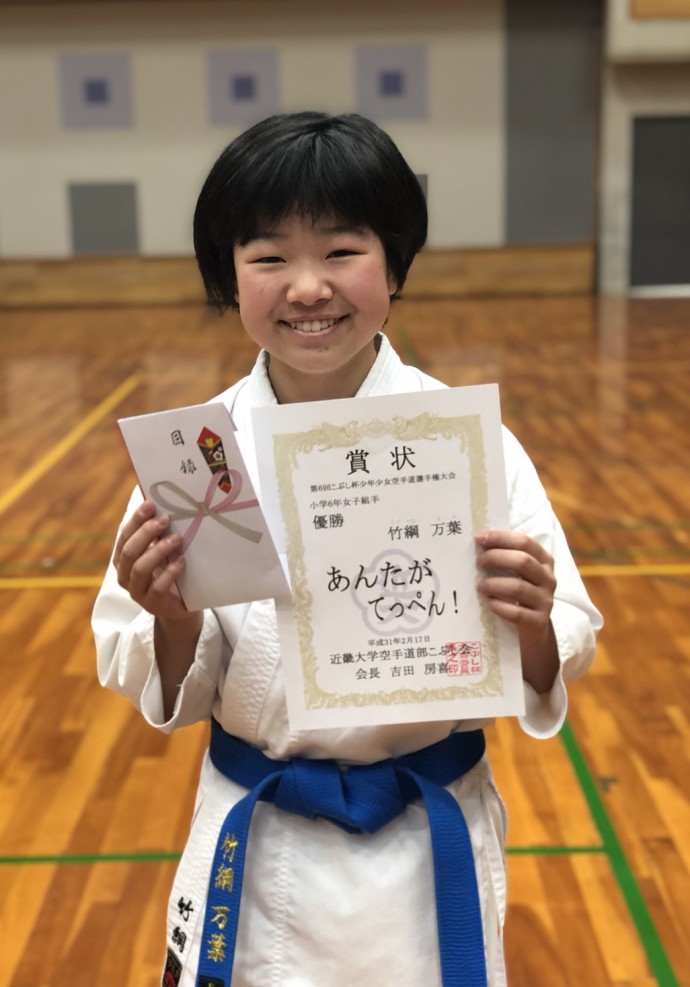 目録
賞状
第6回こぶし杯少年少女空手道選手権大会
小学6年女子組手
優勝
竹綱 万葉
あんたが
てっぺん！
平成31年2月17日
近畿大学空手道部こぶし会
会長 吉田 房喜
竹綱 万葉
竹綱